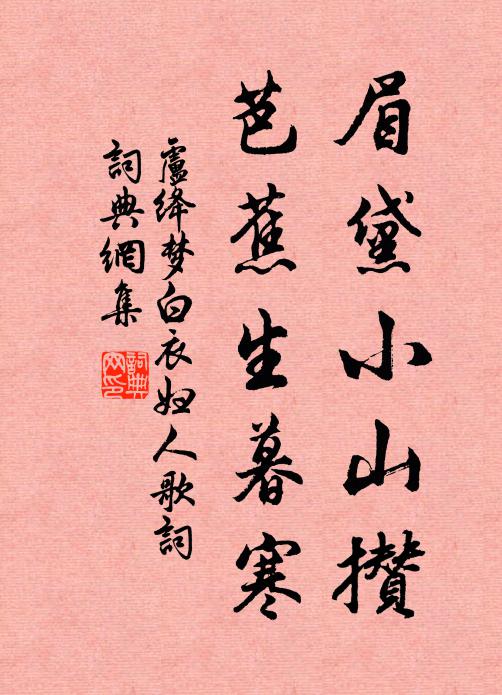 眉黛小山攅
芭蕉生暮寒
盧绛梦白衣妇人歌詞
詞典網集
詞典网印